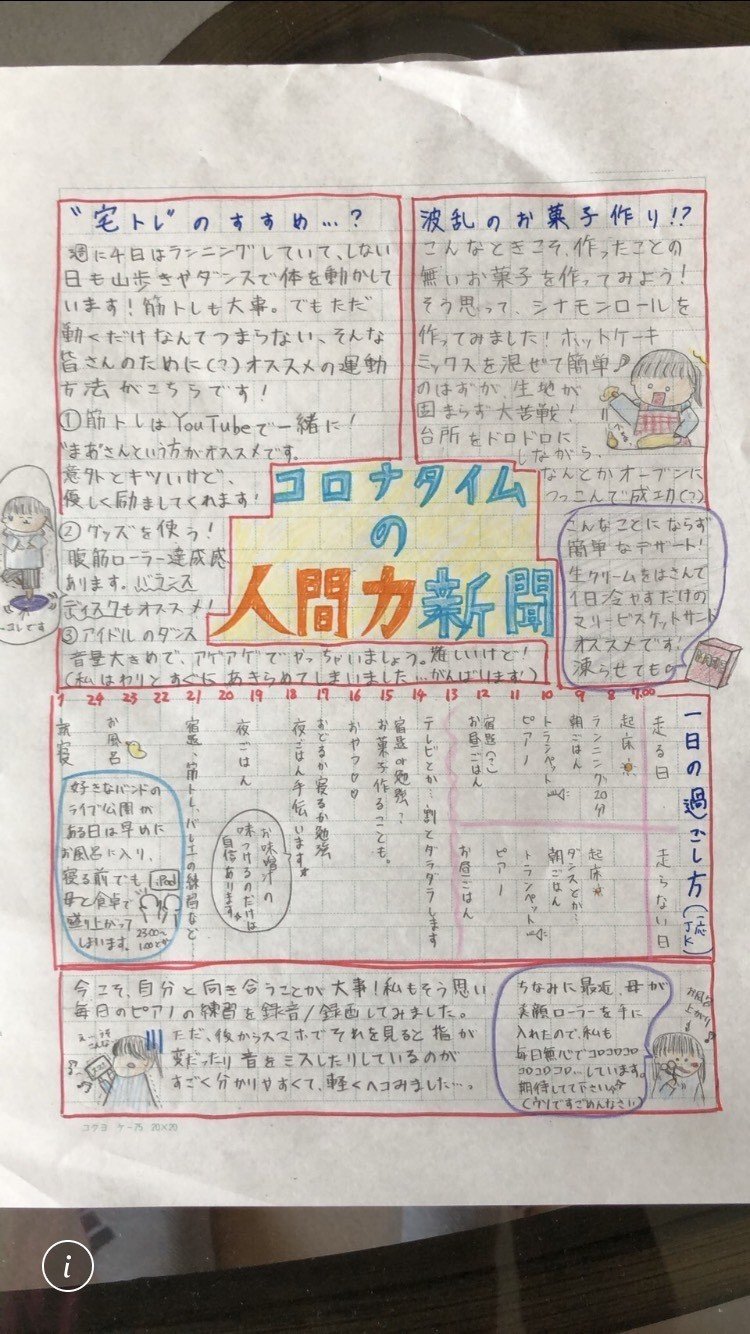 コロナタイム
の
人間力新聞
波乱のお菓子作り!?
こんなときこそ、作ったことの
無いお菓子を作ってみよう!
そう思って、シナモンロールを
作ってみました!ホットケーキ
ミックスを混ぜて簡単♪
のはずが、生地が
固まらず大苦戦!
台所をドロドロに
しながら、
なんとかオーブンに
つっこんで成功(?)
こんなことにならず
簡単なデザート!
生クリームをはさんで
1日冷やすだけの
マリービスケットサンド
オススメです!
凍らせても◎
"宅トレ"のすすめ…?
週に4日はランニングしていて、しない
日も山歩きやダンスで体を動かして
います!筋トレも大事。でもただ
動くだけなんてつまらない、そんな
皆さんのために(?)オススメの運動
方法がこちらです!
①筋トレはYouTubeで一緒に!
"まあ"さんという方がオススメです。
意外とキツいけど、
優しく励ましてくれます!
②グッズを使う!
腹筋ローラー達成感
あります。バランス
ディスクもオススメ!
③アイドルのダンス
音量大きめで、アゲアゲでやっちゃいましょう。難しいけど!
(私はわりとすぐにあきらめてしまいました…がんばります!)
コレです
一日の過ごし方(一応JK)
1 24 23 22 21 20 19 18 17 16 15 14 13 12 11 10 9 8 7:00
走る日
起床
ランニング20分
朝ごはん
トランペット
ピアノ
宿題(?)
お昼ごはん
走らない日
起床
ダンスとか…
朝ごはん
トランペット
ピアノ
お昼ごはん
テレビとか…割とダラダラします
宿題or勉強?
お菓子作ることも。
おやつ♡♡
おどるか寝るか勉強
夜ごはん手伝います☆
お味噌汁の
味つけるのだけは
自信あります☆
夜ごはん
宿題、筋トレ、バレエの練習など
お風呂
就寝
好きなバンドの
ライブ公開が
ある日は早めに
お風呂に入り、
寝る前でも
母と食卓で
盛り上がって
しまいます。
iPad
23:00〜
1:00とか
今こそ、自分と向き合うことが大事!私もそう思い
毎日のピアノの練習を録音/録画してみました。
ただ、後からスマホでそれを見ると指が
変だったり音をミスしたりしているのが
すごく分かりやすくて、軽くへコみました…。
ちなみに最近、母が
美顔ローラーを手に
入れたので、私も
毎日無心でコロコロコロ
コロコロコロ…しています。
期待して下さい☆
(ウソですごめんなさい)
お風呂
上がり♪
コクヨ ケ-75 20×20